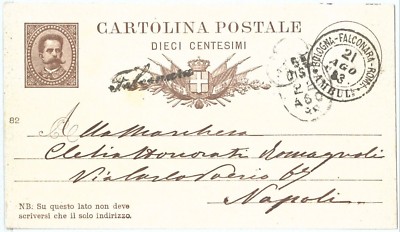 CARTOLINA POSTALE
DIECI CENTESIMI
Falconara
BOLOGNA-FALCONARA-ROMA
21
AGO
83
AMBUL
82
Alla Marchesa
Clelia Honorati Romagnoli
Via Carlo Poerio 67
Napoli
NB: Su questo lato non deve
scriversi che il solo indirizzo.